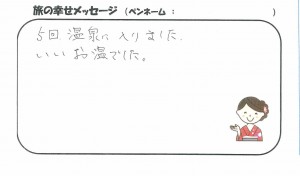 旅の幸せメッセージ（ペンネーム：　　　　　　）
5回温泉に入りました.
いいお温でした。